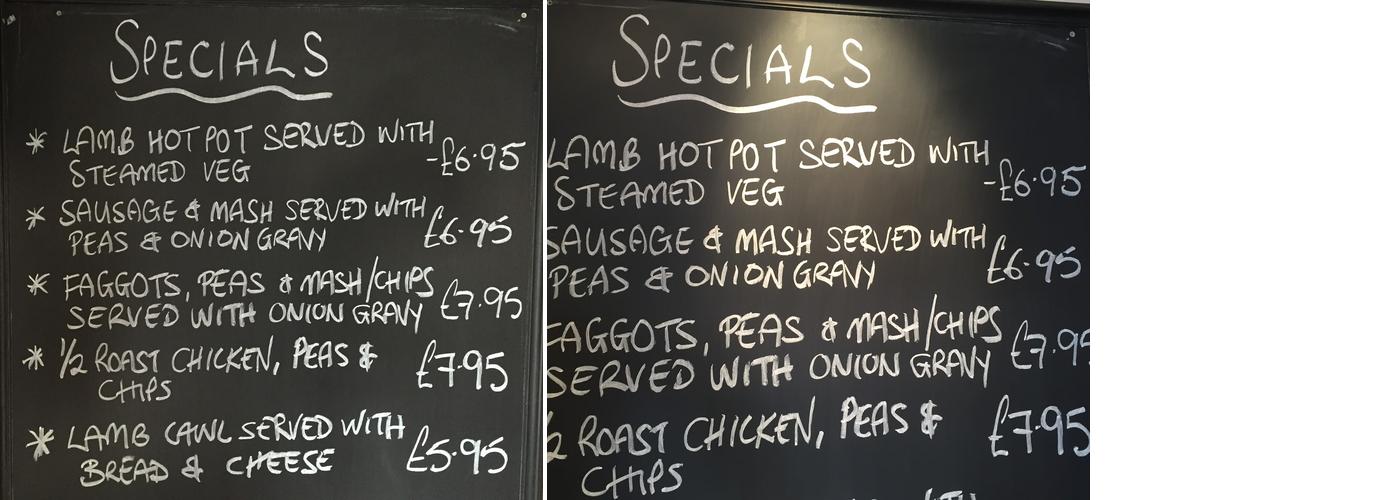 SPECIALS
* LAMB HOT POT SERVED WITH
STEAMED VEG -£6.95
* SAUSAGE & MASH SERVED WITH
PEAS & ONION GRAVY £6.95
* FAGGOTS, PEAS & MASH/CHIPS
SERVED WITH ONION GRAVY £7.95
* 1/2 ROAST CHICKEN, PEAS &
CHIPS £7.95
* LAMB CAWL SERVED WITH
BREAD & CHEESE £5.95
SPECIALS
LAMB HOT POT SERVED WITH
STEAMED VEG -£6.95
SAUSAGE & MASH SERVED WITH
PEAS & ONION GRAVY £6.95
FAGGOTS, PEAS & MASH/CHIPS
SERVED WITH ONION GRAVY £7.95
2 ROAST CHICKEN, PEAS &
CHIPS £7.95